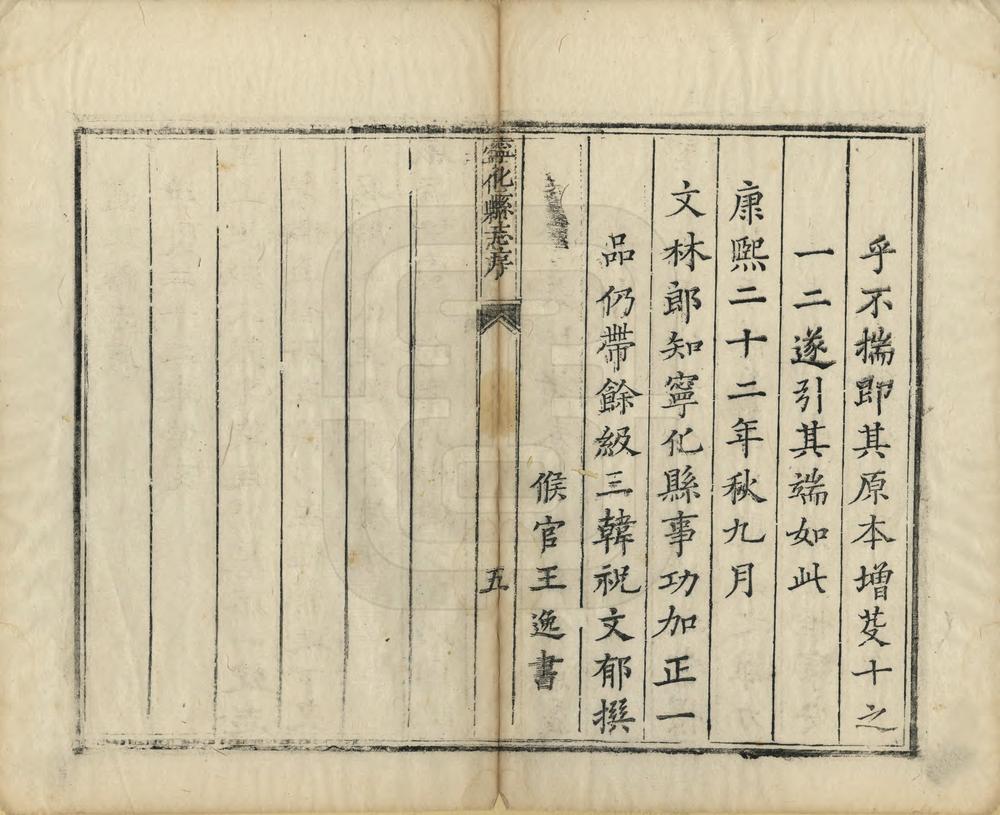 乎不揣即其原本增芟十之
一二遂引其端如此
康熙二十二年秋九月
文林郎知寧化縣事功加正一
品仍帶餘級三韓祝文郁撰
候官王逸書
寧化縣志序
五